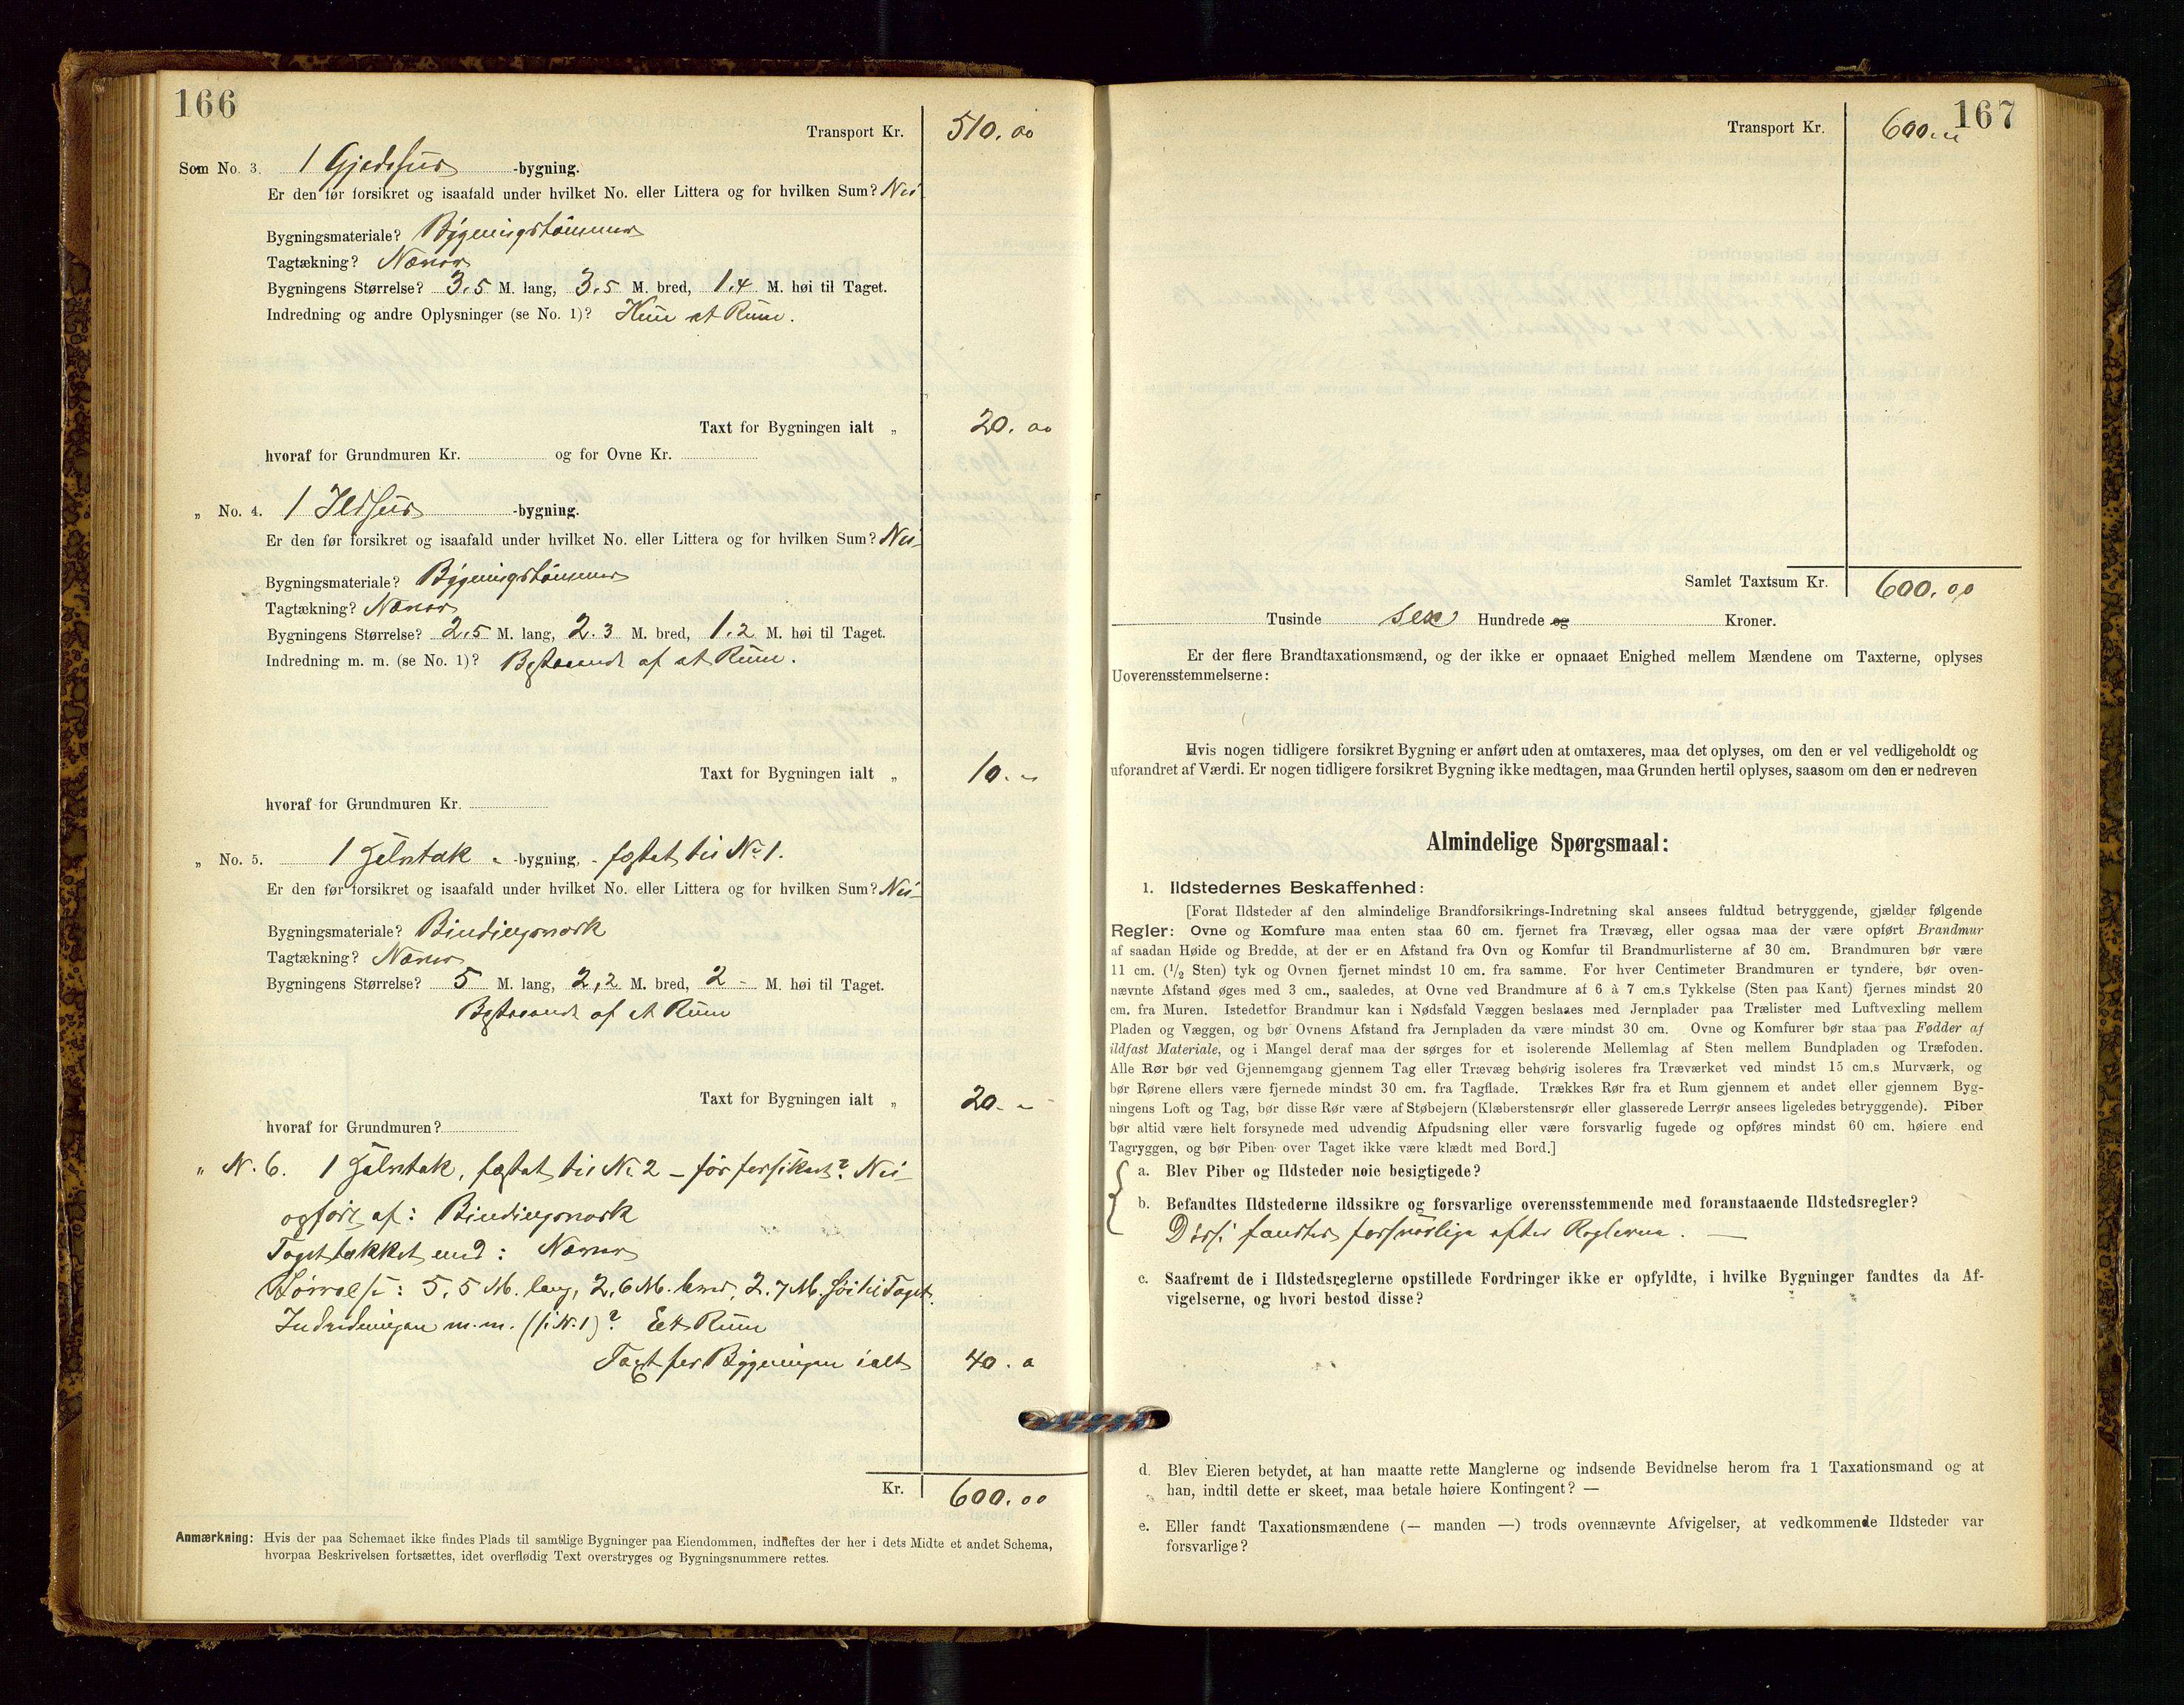 166
Transport Kr. 510.00
Som No. 3. 1 Gjedehus -bygning.
Er den før forsikret og isaafald under hvilket No. eller Littera og for hvilken Sum? Nei
Bygningsmateriale? Bygningstømmer
Tagtækning? Næver
Bygningens Størrelse? 3.5 M. lang, 3.5 M. bred, 1.4 M. høi til Taget.
Indredning og andre Oplysninger (se No. 1)? Kun et Rum.
Taxt for Bygningen ialt „ 20.00
hvoraf for Grundmuren Kr. og for Ovne Kr.
„ No. 4. 1 Ildhus -bygning.
Er den før forsikret og isaafald under hvilket No. eller Littera og for hvilken Sum? Nei-
Bygningsmateriale? Bygningstømmer
Tagtækning? Næver
Bygningens Størrelse? 2.5 M. lang, 2.3 M. bred, 1.2 M. høi til Taget.
Indredning m. m. (se No. 1)? Bestaaende af et Rum.
Taxt for Bygningen ialt „ 10.-
hvoraf for Grundmuren Kr.
„ No. 5. 1 Halvtak - -bygning, - fæstet til No 1.
Er den før forsikret og isaafald under hvilket No. eller Littera og for hvilken Sum? Nei-
Bygningsmateriale? Bindingsverk
Tagtækning? Næver
Bygningens Størrelse? 5 M. lang, 2,2 M. bred, 2 - M. høi til Taget.
Bestaaende af et Rum
Taxt for Bygningen ialt „ 20.-
hvoraf for Grundmuren?
„ N. 6. 1 Halvtak, fæstet til No 2 - før forsikret? Nei-
opført af: Bindingsverk
Taget tækket med: Næver
Størrelse: 5,5 M. lang, 2,6 M. bred, 2.7 M. høi til Taget.
Indredningen m.m. (se N. 1)? Eet Rum
Taxt for Bygningen ialt 40.0
Kr. 600.00
Anmærkning: Hvis der paa Schemaet ikke findes Plads til samtlige Bygninger paa Eiendommen, indheftes der her i dets Midte et andet Schema,
hvorpaa Beskrivelsen fortsættes, idet overflødig Text overstryges og Bygningsnummere rettes.
167
Transport Kr. 600.00
Samlet Taxtsum Kr. 600.00
Tusinde sex Hundrede og Kroner.
Er der flere Brandtaxationsmænd, og der ikke er opnaaet Enighed mellem Mændene om Taxterne, oplyses
Uoverensstemmelserne:
Hvis nogen tidligere forsikret Bygning er anført uden at omtaxeres, maa det oplyses, om den er vel vedligeholdt og
uforandret af Værdi. Er nogen tidligere forsikret Bygning ikke medtagen, maa Grunden hertil oplyses, saasom om den er nedreven
Almindelige Spørgsmaal:
1. Ildstedernes Beskaffenhed:
[Forat Ildsteder af den almindelige Brandforsikrings-Indretning skal ansees fuldtud betryggende, gjælder følgende
Regler: Ovne og Komfure maa enten staa 60 cm. fjernet fra Trævæg, eller ogsaa maa der være opført Brandmur
af saadan Høide og Bredde, at der er en Afstand fra Ovn og Komfur til Brandmurlisterne af 30 cm. Brandmuren bør være
11 cm. (1/2 Sten) tyk og Ovnen fjernet mindst 10 cm. fra samme. For hver Centimeter Brandmuren er tyndere, bør oven-
nævnte Afstand øges med 3 cm., saaledes, at Ovne ved Brandmure af 6 à 7 cm.s Tykkelse (Sten paa Kant) fjernes mindst 20
cm. fra Muren. Istedetfor Brandmur kan i Nødsfald Væggen beslaaes med Jernplader paa Trælister med Luftvexling mellem
Pladen og Væggen, og bør Ovnens Afstand fra Jernpladen da være mindst 30 cm. Ovne og Komfurer bør staa paa Fødder af
ildfast Materiale, og i Mangel deraf maa der sørges for et isolerende Mellemlag af Sten mellem Bundpladen og Træfoden.
Alle Rør bør ved Gjennemgang gjennem Tag eller Trævæg behørig isoleres fra Træværket ved mindst 15 cm.s Murværk, og
bør Rørene ellers være fjernede mindst 30 cm. fra Tagflade. Trækkes Rør fra et Rum gjennem et andet eller gjennem Byg-
ningens Loft og Tag, bør disse Rør være af Støbejern (Klæberstensrør eller glasserede Lerrør ansees ligeledes betryggende). Piber
bør altid være helt forsynede med udvendig Afpudsning eller være forsvarlig fugede og opføres mindst 60 cm. høiere end
Tagryggen, og bør Piben over Taget ikke være klædt med Bord.]
a. Blev Piber og Ildsteder nøie besigtigede?
b. Befandtes Ildstederne ildssikre og forsvarlige overensstemmende med foranstaaende Ildstedsregler?
Disse fandtes forsvarlige efter Reglerne. —
c. Saafremt de i Ildstedsreglerne opstillede Fordringer ikke er opfyldte, i hvilke Bygninger fandtes da Af-
vigelserne, og hvori bestod disse?
d. Blev Eieren betydet, at han maatte rette Manglerne og indsende Bevidnelse herom fra 1 Taxationsmand og at
han, indtil dette er skeet, maa betale høiere Kontingent? —
e. Eller fandt Taxationsmændene (— manden —) trods ovennævnte Afvigelser, at vedkommende Ildsteder var
forsvarlige?